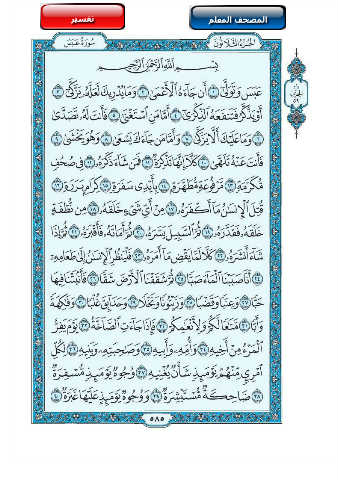 تفسير
المصحف المعلم
سورة عبس
الجزء الثلاثون
بسم الله الرحمن الرحيم
عبس وتولى ١ أن جاءه الأعمى ٢ وما يدريك لعله يزكى ٣
أو يذكر فتنفعه الذكرى ٤ أما من استغنى ٥ فأنت له تصدى
٦ وما عليك ألا يزكى ٧ وأما من جاءك يسعى ٨ وهو يخشى ٩
فأنت عنه تلهى ١٠ كلا إنها تذكرة ١١ فمن شاء ذكره ١٢ في صحف
مكرمة ١٣ مرفوعة مطهرة ١٤ بأيدي سفرة ١٥ كرام بررة ١٦
قتل الإنسان ما أكفره ١٧ من أي شيء خلقه ١٨ من نطفة
خلقه فقدره ١٩ ثم السبيل يسره ٢٠ ثم أماته فأقبره ٢١ ثم إذا
شاء أنشره ٢٢ كلا لما يقض ما أمره ٢٣ فلينظر الإنسان إلى طعامه
٢٤ أنا صببنا الماء صبا ٢٥ ثم شققنا الأرض شقا ٢٦ فأنبتنا فيها
حبا ٢٧ وعنبا وقضبا ٢٨ وزيتونا ونخلا ٢٩ وحدائق غلبا ٣٠ وفاكهة
وأبا ٣١ متاعا لكم ولأنعامكم ٣٢ فإذا جاءت الصاخة ٣٣ يوم يفر
المرء من أخيه ٣٤ وأمه وأبيه ٣٥ وصاحبته وبنيه ٣٦ لكل
امرئ منهم يومئذ شأن يغنيه ٣٧ وجوه يومئذ مسفرة
٣٨ ضاحكة مستبشرة ٣٩ ووجوه يومئذ عليها غبرة ٤٠
٥٨٥